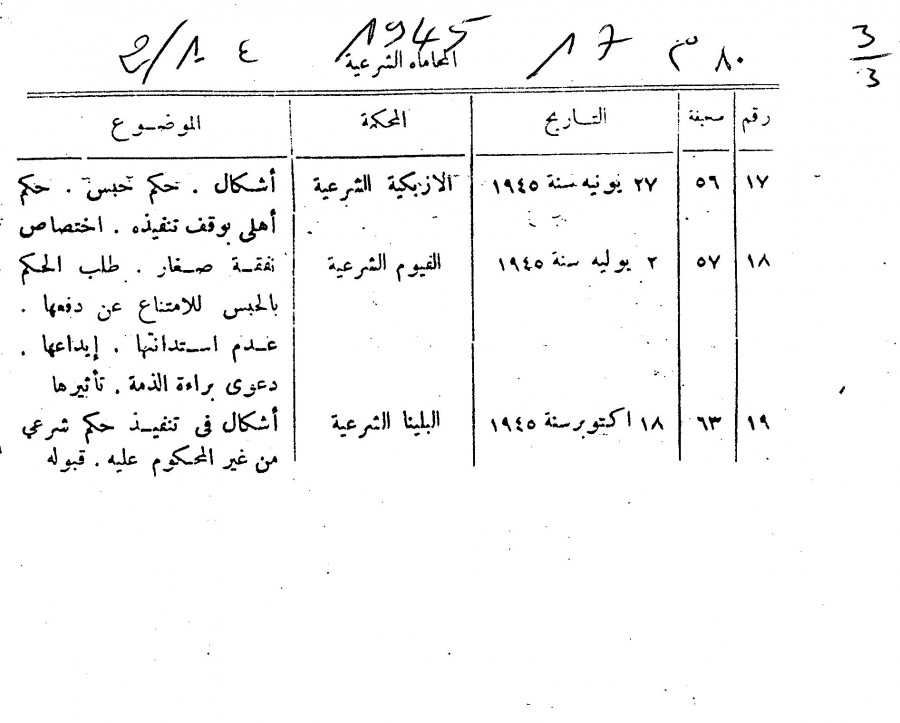 1945
المحاماه الشرعية
3/3
رقم صحيفة التاريخ المحكمة الموضوع
١٧ ٥٦ ٢٧ يونيه سنة ١٩٤٥ الازبكية الشرعية أشكال . حكم حبس . حكم
أهلى بوقف تنفيذه . اختصاص
١٨ ٥٧ ٢ يوليه سنة ١٩٤٥ الفيوم الشرعية نفقة صغار . طلب الحكم
بالحبس للامتناع عن دفعها .
عدم استدانتها . إيداعها .
دعوى براءة الذمة . تأثيرها
١٩ ٦٣ ١٨ اكتوبر سنة ١٩٤٥ البلينا الشرعية أشكال فى تنفيذ حكم شرعي
من غير المحكوم عليه . قبوله